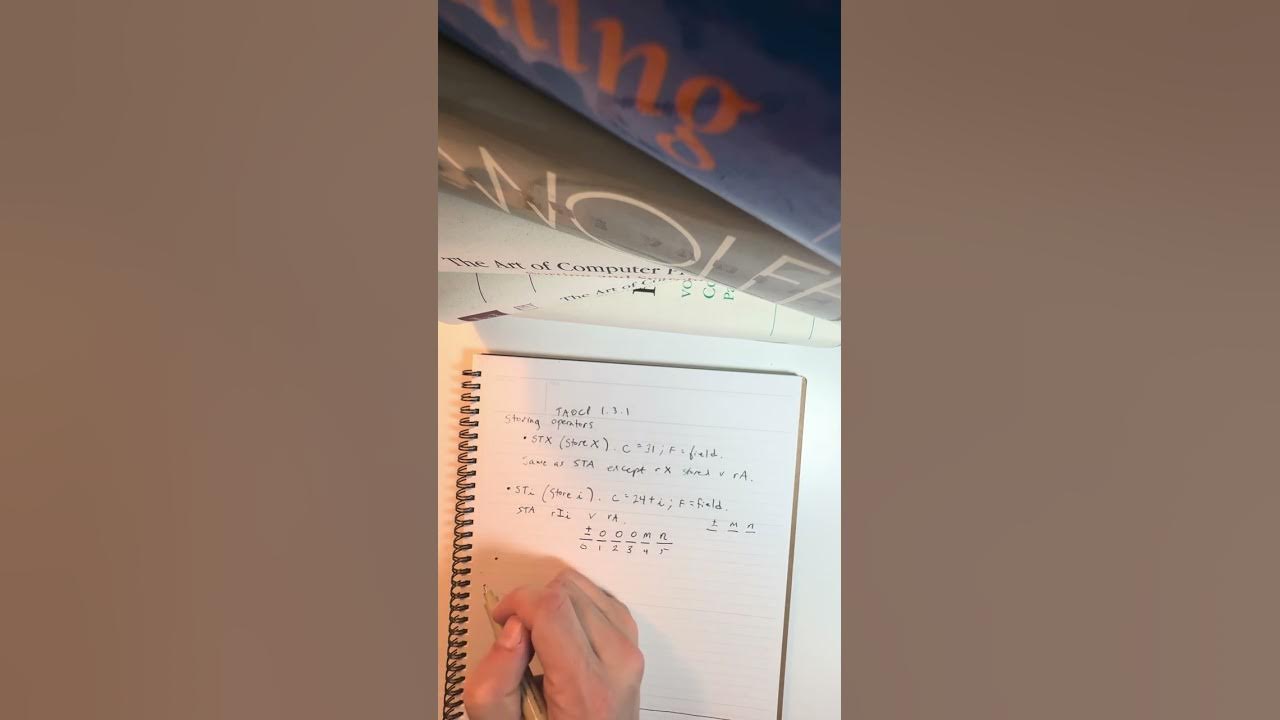 ng
WOLF
The Art of Computer P
The Art of C
I
TAOCP 1.3.1
Storing operators
• STX (Store X). C = 31; F = field.
Same as STA except rX stored v rA.
• STi (Store i). C = 24 + i; F = field.
STA rIi v rA.
± M N
± 0 0 0 M N
0 1 2 3 4 5
•